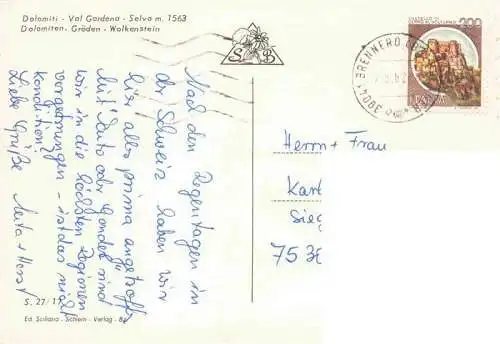 Dolomiti - Val Gardena - Selva m. 1563
Dolomiten - Gröden - Wolkenstein
Nach den Regentagen in
der Schweiz haben wir
hier alles prima angetroffen.
Mit Auto oder Gondel sind
wir in die höchsten Regionen
vorgedrungen - ist das nicht
Kondition?
Liebe Grüße
S. 27/17
Ed. Sciliano - Schlern - Verlag - Bz
S B
200
ITALIA
BRENNERO
Herrn + Frau
Kar
Sieg
753